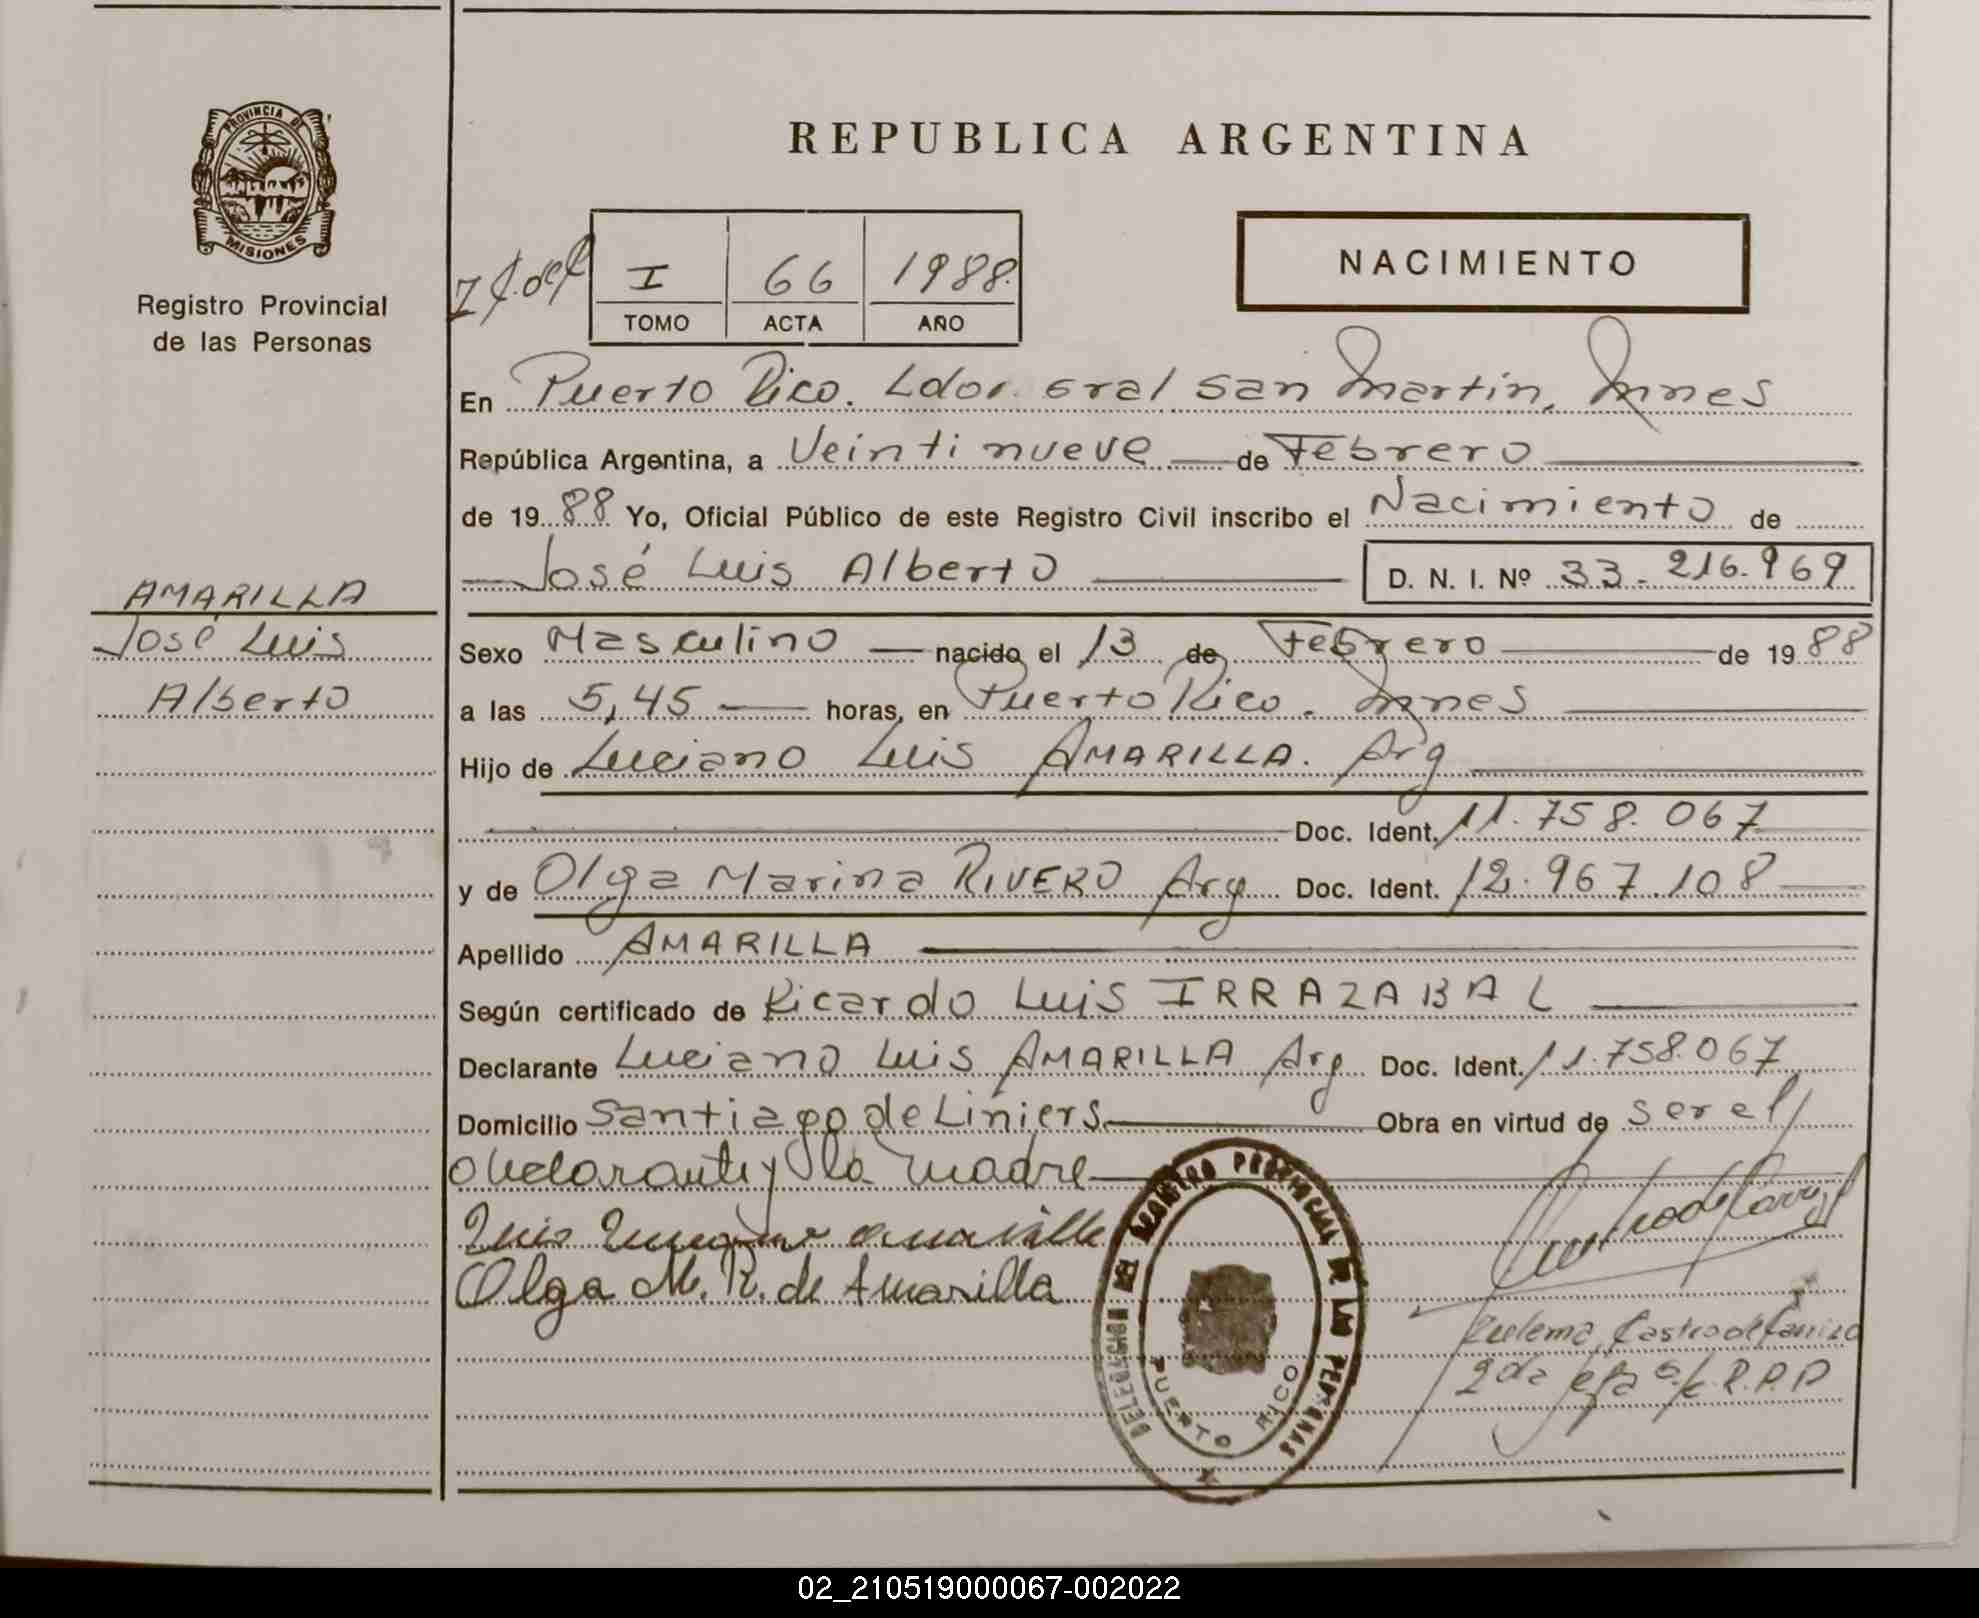 PROVINCIA DE
MISIONES
Registro Provincial
de las Personas
REPUBLICA ARGENTINA
I 66 1988.
TOMO ACTA AÑO
NACIMIENTO
En Puerto Rico. Ldor. Gral San Martin, Mnes
República Argentina, a Veintinueve de Febrero
de 1988 Yo, Oficial Público de este Registro Civil inscribo el Nacimiento de
José Luis Alberto D. N. I. Nº 33.216.969
AMARILLA
José Luis
Alberto
Sexo Masculino nacido el 13 de Febrero de 1988
a las 5,45 horas, en Puerto Rico. Mnes
Hijo de Luciano Luis AMARILLA. Arg
Doc. Ident. 11.758.067
y de Olga Marina RIVERO Arg Doc. Ident. 12.967.108
Apellido AMARILLA
Según certificado de Ricardo Luis IRRAZABAL
Declarante Luciano Luis AMARILLA Arg Doc. Ident. 11.758.067
Domicilio Santiago de Liniers Obra en virtud de ser el
declarante y la madre
Luis
Olga M. R. de Amarilla
DELEGACION DEL REGISTRO PROVINCIAL DE LAS PERSONAS
PUERTO RICO
Castro de
2da Jefa R.P.P
02_210519000067-002022